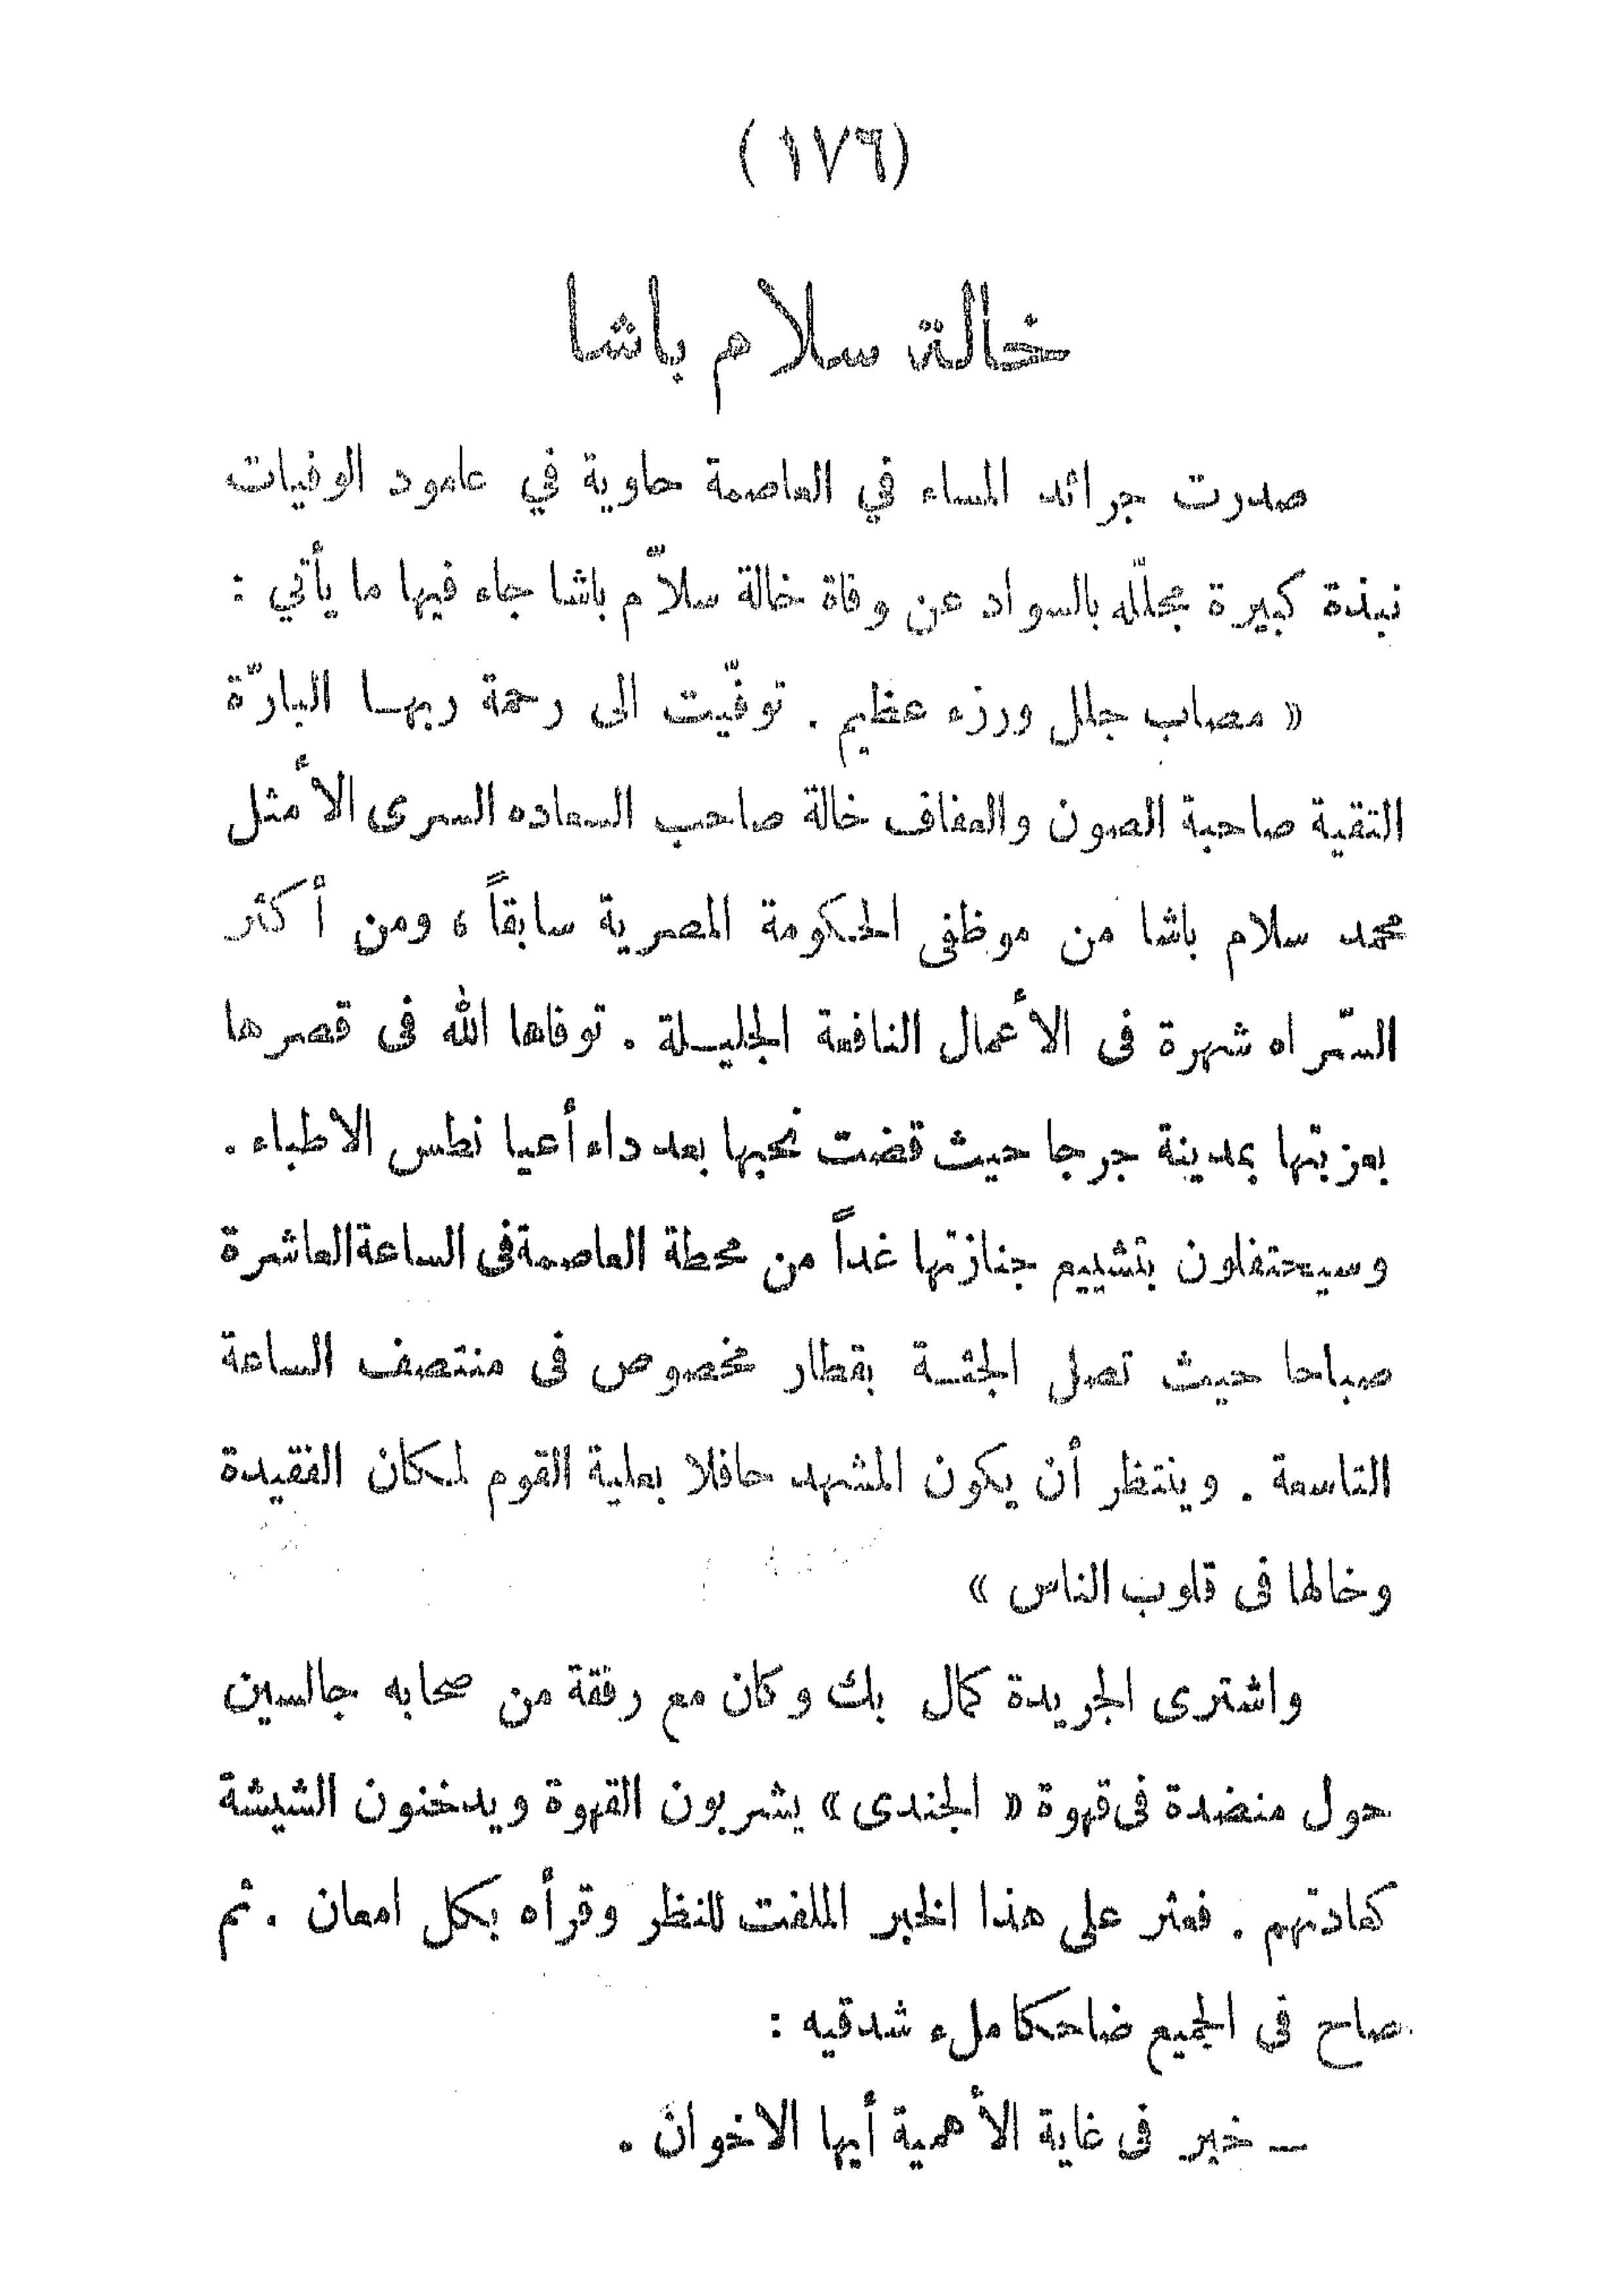 (١٧٦)
خالة سلام باشا
صدرت جرائد المساء في العاصمة حاوية في عامود الوفيات
نبذة كبيرة مجلّله بالسواد عن وفاة خالة سلاّم باشا جاء فيها ما يأتي :
« مصاب جلل ورزء عظيم . توفّيت الى رحمة ربها البارّة
التقية صاحبة الصون والعفاف خالة صاحب السعاده السرى الأمثل
محمد سلام باشا من موظفى الحكومة المصرية سابقاً ، ومن أكثر
السّراه شهرة فى الأعمال النافعة الجليلة . توفاها الله فى قصرها
بعزبتها بمدينة جرجا حيث قضت نحبها بعد داء أعيا نطس الاطباء .
وسيحتفلون بتشييع جنازتها غداً من محطة العاصمة فى الساعة العاشرة
صباحا حيث تصل الجثة بقطار مخصوص فى منتصف الساعة
التاسعة . وينتظر أن يكون المشهد حافلا بعلية القوم لمكان الفقيدة
وخالها فى قلوب الناس »
واشترى الجريدة كمال بك وكان مع رفقة من صحابه جالسين
حول منضدة فى قهوة « الجندى » يشربون القهوة ويدخنون الشيشة
كعادتهم . فعثر على هذا الخبر الملفت للنظر وقرأه بكل امعان . ثم
صاح فى الجميع ضاحكا ملء شدقيه :
— خبر فى غاية الأهمية أيها الاخوان .